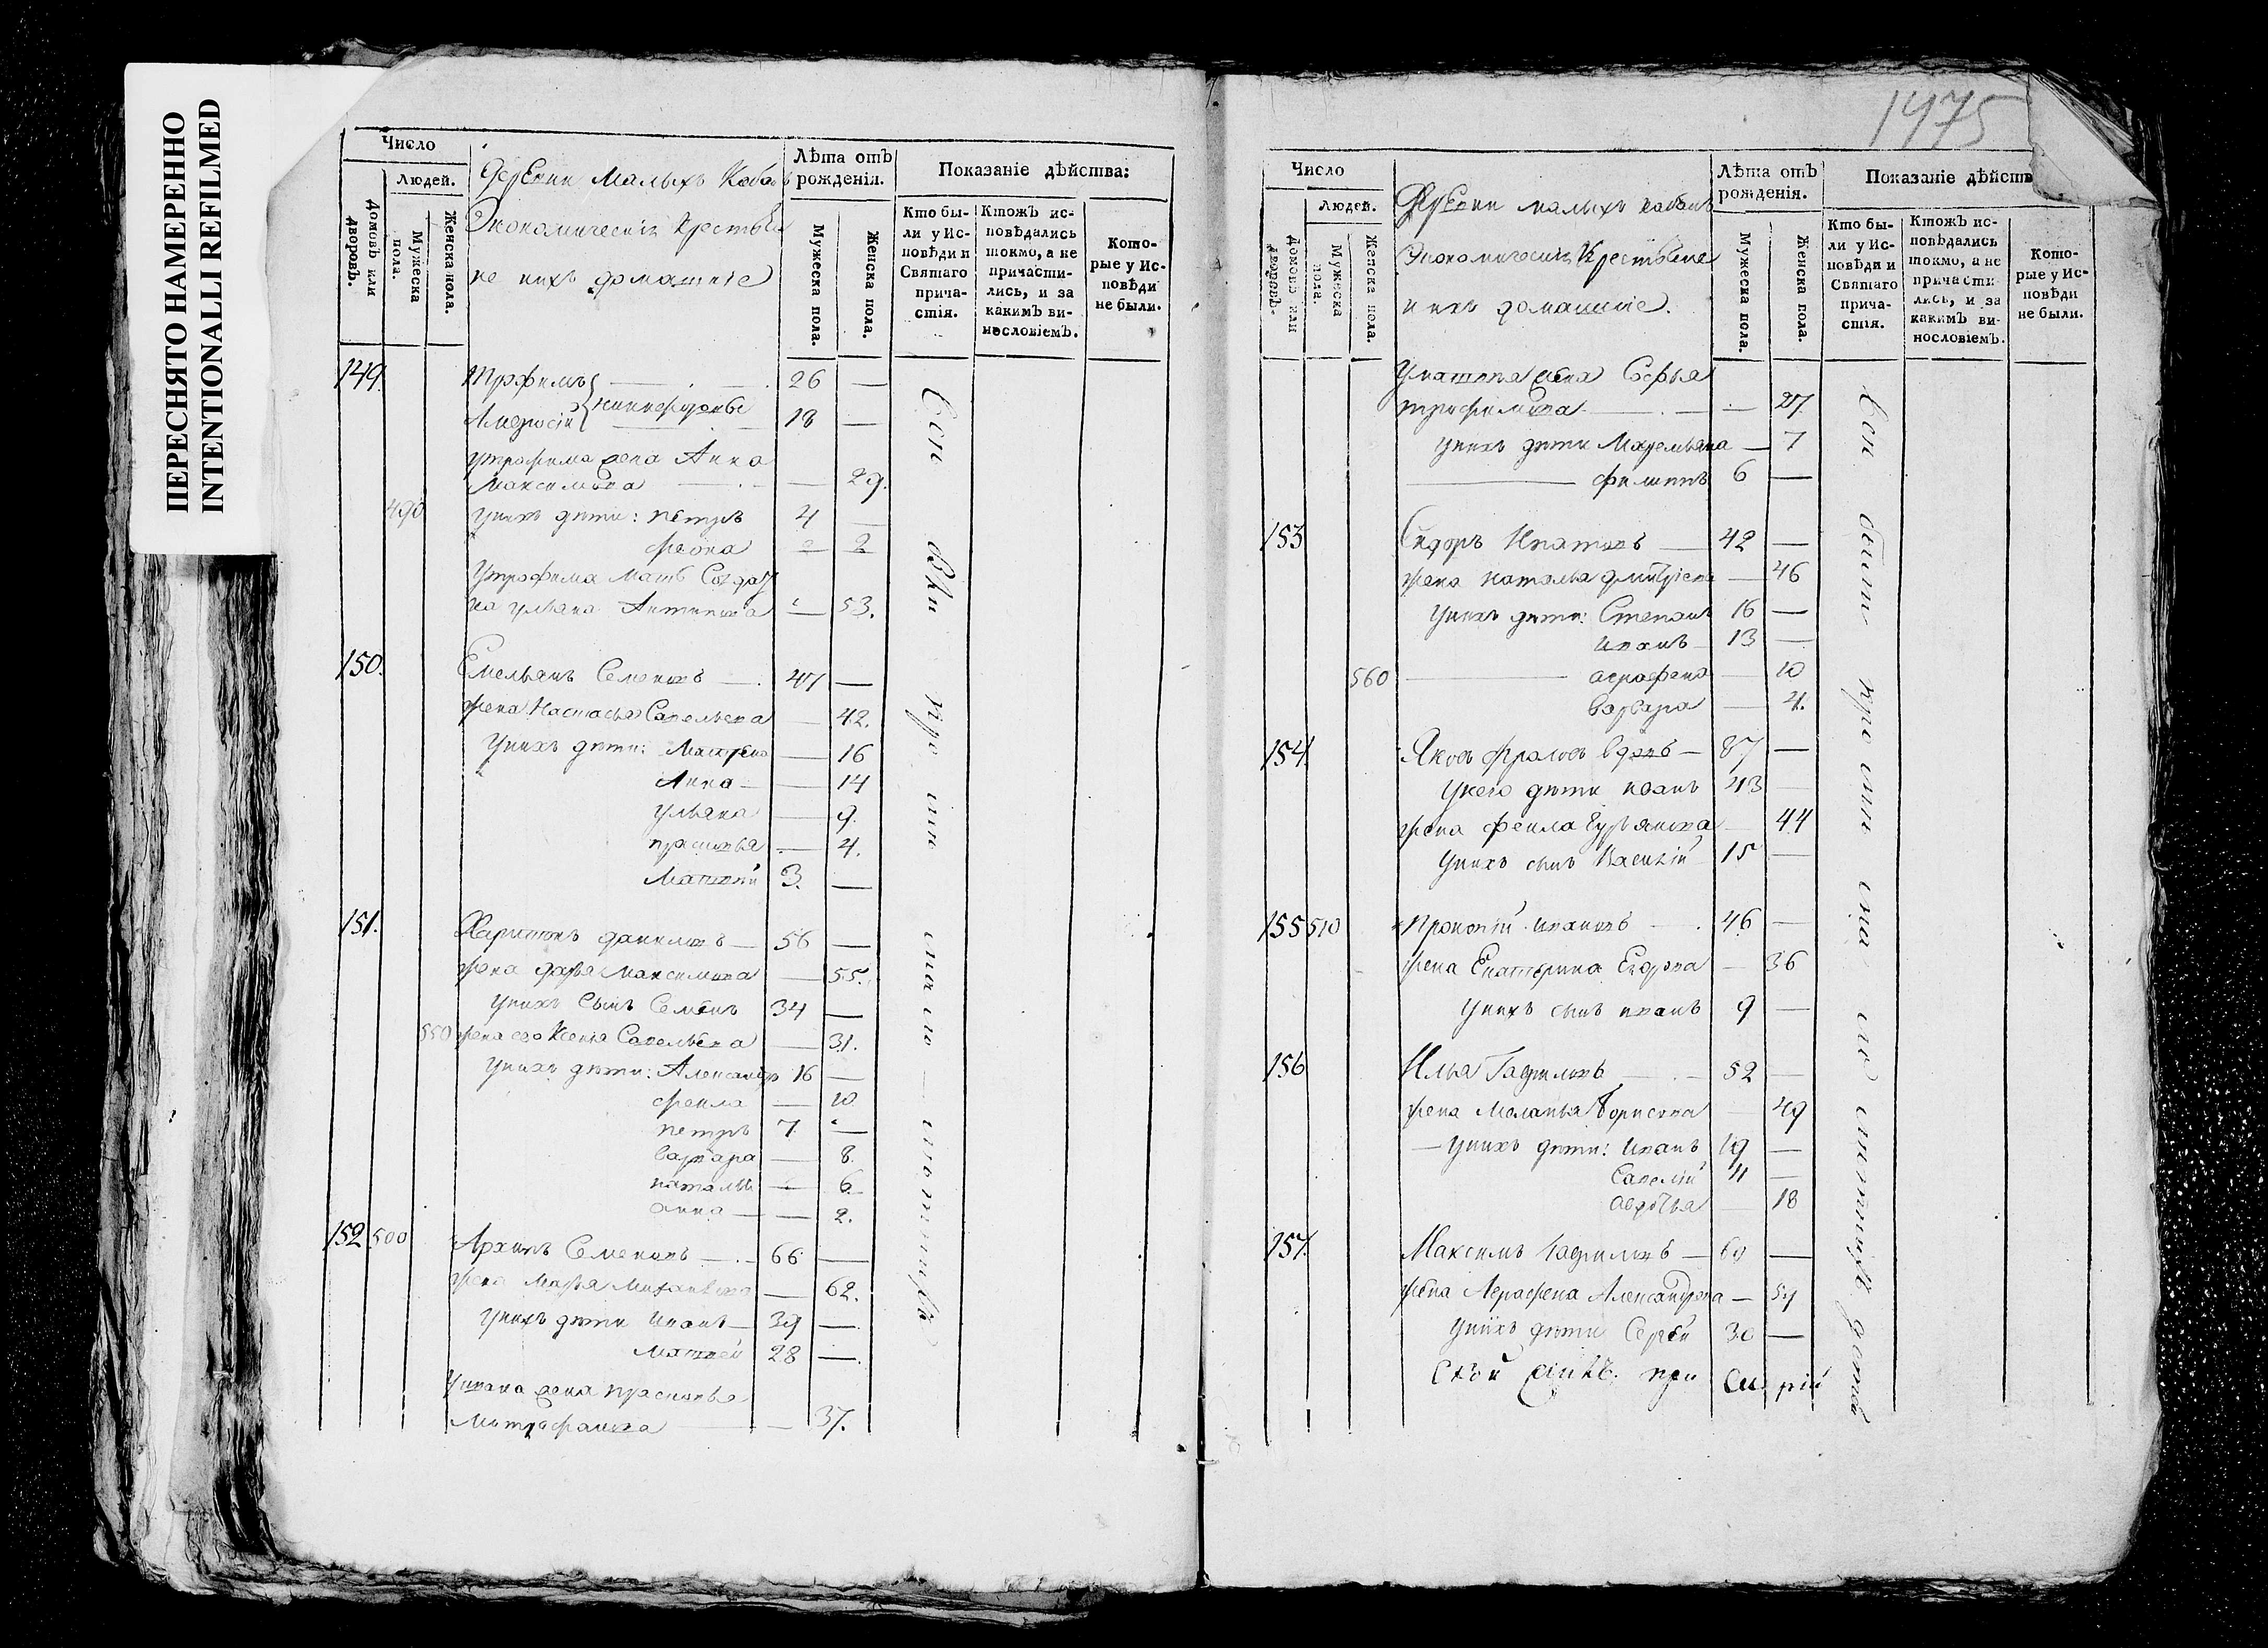 ПЕРЕСНЯТО НАМЕРЕННО
INTENTIONALLI REFILMED
Число
Людей.
Домовъ или дворовъ.
Мужеска пола.
Женска пола.
Деревни Малыхъ Кабанъ
Экономическiя Крестьяне
не ихъ домашнiе
Лѣта отъ рожденiя.
Мужеска пола.
Женска пола.
Показанiе дѣйства:
Кто были у Исповѣди и Святаго причастiя.
Ктожъ исповѣдались токмо, а не причастились, и за какимъ винословiемъ.
Которые у Исповѣди не были.
149. Трофимъ 26 —
Никифоровы
Амвросiй 18 —
Утрофима жена Анна
Максимова — 29.
490 Унихъ дѣти: Петръ 4 —
феона — 2
Утрофима мать Солдат
ка ульяна Антипова — 53.
150. Емельянъ Семеновъ — 47 —
жена Настасья Савельева — 42.
Унихъ дѣти: Матрена — 16
Анна — 14
Ульяна — 9.
прасковья — 4.
Матвѣй 3. —
151. Харитонъ даниловъ — 56 —
жена дарья Максимова — 55.
Унихъ Сынъ Семенъ 34 —
550 жена его Ксенья Савельева — 31.
Унихъ дѣти: Александръ 16 —
фекла — 10
Петръ 7 —
варвара — 8.
наталья — 6.
анна — 2.
152 500 Архипъ Семеновъ — 66 —
жена Марья Михайлова — 62.
Унихъ дѣти Иванъ — 39 —
Матвей 28 —
Уивана жена прасковья
Митрофанова — 37.
1475
Число
Людей.
Домовъ или дворовъ.
Мужеска пола.
Женска пола.
Деревни малыхъ кабанъ
Экономическiя Крестьяне
и ихъ домашнiе.
Лѣта отъ рожденiя.
Мужеска пола.
Женска пола.
Показанiе дѣйств
Кто были у Исповѣди и Святаго причастiя.
Ктожъ исповѣдались токмо, а не причастились, и за какимъ винословiемъ.
Которые у Исповѣди не были.
Уматвея жена Софья
трофимова — 27.
Унихъ дѣти Маремьяна — 7
филиппъ 6 —
153 Сидоръ Игнатовъ — 42 —
жена наталья дмитрiева — 46
Унихъ дѣти: Степанъ 16 —
иванъ 13 —
560 аграфена — 10
варвара — 4.
154. Яковъ фроловъ вдовъ — 87 —
Унего дѣти иванъ 43 —
жена фекла Гурьянова — 44
Унихъ сынъ Василiй 15 —
155 510 Прокопiй ивановъ — 46 —
жена Екатерина Егорова — 36
Унихъ сынъ иванъ 9 —
156 Илья Гавриловъ — 52 —
жена Меланья Борисова — 49
— Унихъ дѣти: Иванъ 19 —
Савелiй 11 —
авдотья — 18
157. Максимъ Гавриловъ — 60 —
жена Аграфена Александрова — 54
Унихъ дѣти Сергѣй 30 —